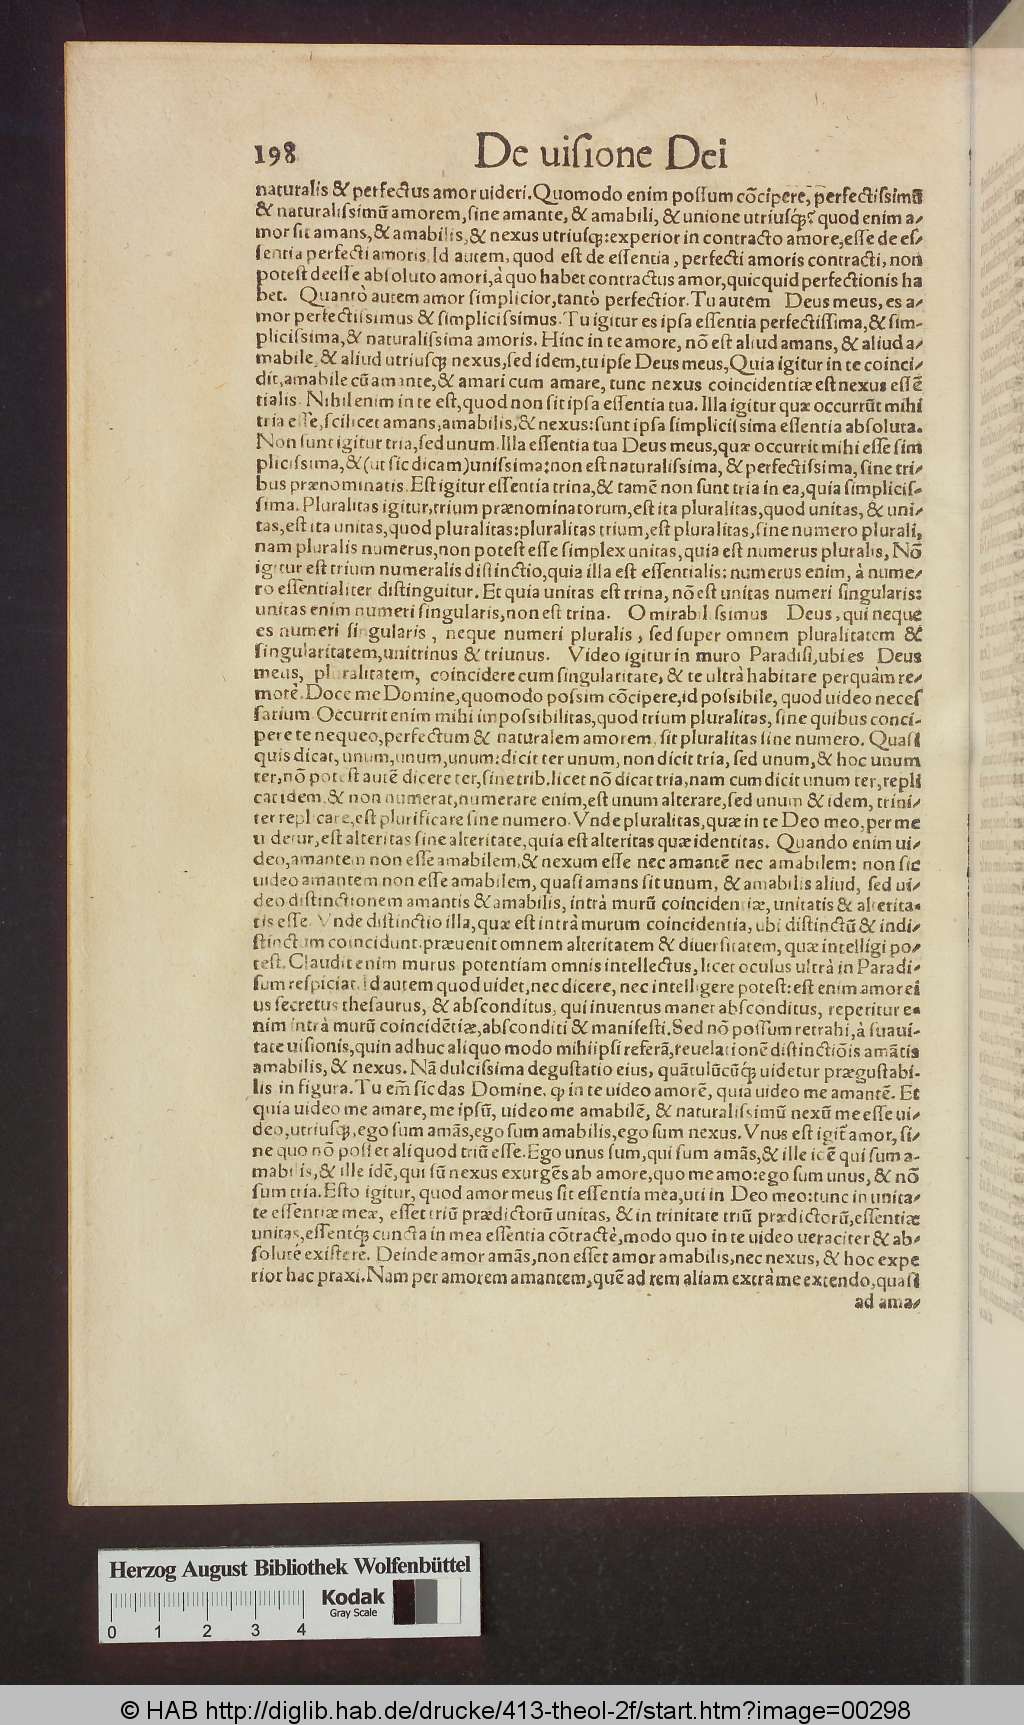 198 De uiſione Dei
naturalis & perfectus amor uideri. Quomodo enim poſſum cōcipere, perfectiſsimū
& naturaliſsimū amorem, ſine amante, & amabili, & unione utriuſqꝫ? quod enim a-
mor ſit amans, & amabilis, & nexus utriuſqꝫ: experior in contracto amore, eſſe de eſ-
ſentia perfecti amoris. Id autem, quod eſt de eſſentia, perfecti amoris contracti, non
poteſt deeſſe abſoluto amori, à quo habet contractus amor, quicquid perfectionis ha
bet. Quantò autem amor ſimplicior, tantò perfectior. Tu autem Deus meus, es a-
mor perfectiſsimus & ſimpliciſsimus. Tu igitur es ipſa eſſentia perfectiſſima, & ſim-
pliciſsima, & naturaliſsima amoris. Hinc in te amore, nō eſt aliud amans, & aliud a-
mabile, & aliud utriuſqꝫ nexus, ſed idem, tu ipſe Deus meus, Quia igitur in te coinci-
dit, amabile cū amante, & amari cum amare, tunc nexus coincidentiæ eſt nexus eſſē
tialis. Nihil enim in te eſt, quod non ſit ipſa eſſentia tua. Illa igitur quæ occurrūt mihi
tria eſſe, ſcilicet amans, amabilis, & nexus: ſunt ipſa ſimpliciſsima eſſentia abſoluta.
Non ſunt igitur tria, ſed unum. Illa eſſentia tua Deus meus, quæ occurrit mihi eſſe ſim
pliciſsima, & (ut ſic dicam) uniſsima: non eſt naturaliſsima, & perfectiſsima, ſine tri-
bus prænominatis. Eſt igitur eſſentia trina, & tamē non ſunt tria in ea, quia ſimpliciſ-
ſima. Pluralitas igitur, trium prænominatorum, eſt ita pluralitas, quod unitas, & uni-
tas, eſt ita unitas, quod pluralitas: pluralitas trium, eſt pluralitas, ſine numero plurali,
nam pluralis numerus, non poteſt eſſe ſimplex unitas, quia eſt numerus pluralis, Nō
igitur eſt trium numeralis diſtinctio, quia illa eſt eſſentialis: numerus enim, à nume-
ro eſſentialiter diſtinguitur. Et quia unitas eſt trina, nō eſt unitas numeri ſingularis:
unitas enim numeri ſingularis, non eſt trina. O mirabiliſsimus Deus, qui neque
es numeri ſingularis, neque numeri pluralis, ſed ſuper omnem pluralitatem &
ſingularitatem, unitrinus & triunus. Video igitur in muro Paradiſi, ubi es Deus
meus, pluralitatem, coincidere cum ſingularitate, & te ultrà habitare perquàm re-
motè. Doce me Domine, quomodo poſsim cōcipere, id poſsibile, quod uideo neceſ
ſarium. Occurrit enim mihi impoſsibilitas, quod trium pluralitas, ſine quibus conci-
pere te nequeo, perfectum & naturalem amorem, ſit pluralitas ſine numero. Quaſi
quis dicat, unum, unum, unum: dicit ter unum, non dicit tria, ſed unum, & hoc unum
ter, nō poteſt autē dicere ter, ſine trib. licet nō dicat tria, nam cum dicit unum ter, repli
cat idem, & non numerat, numerare enim, eſt unum alterare, ſed unum & idem, trini-
ter replicare, eſt plurificare ſine numero. Vnde pluralitas, quæ in te Deo meo, per me
uidetur, eſt alteritas ſine alteritate, quia eſt alteritas quæ identitas. Quando enim ui-
deo, amantem non eſſe amabilem, & nexum eſſe nec amantē nec amabilem: non ſic
uideo amantem non eſſe amabilem, quaſi amans ſit unum, & amabilis aliud, ſed ui-
deo diſtinctionem amantis & amabilis, intrà murū coincidentiæ, unitatis & alterita-
tis eſſe. Vnde diſtinctio illa, quæ eſt intrà murum coincidentia, ubi diſtinctū & indi-
ſtinctum coincidunt, præuenit omnem alteritatem & diuerſitatem, quæ intelligi po-
teſt. Claudit enim murus potentiam omnis intellectus, licet oculus ultrà in Paradi-
ſum reſpiciat. Id autem quod uidet, nec dicere, nec intelligere poteſt: eſt enim amor ei
us ſecretus theſaurus, & abſconditus, qui inuentus manet abſconditus, reperitur e-
nim intrà murū coincidētiæ, abſconditi & manifeſti. Sed nō poſſum retrahi, à ſuaui-
tate uiſionis, quin adhuc aliquo modo mihiipſi referā, reuelationē diſtinctiōis amātis
amabilis, & nexus. Nā dulciſsima deguſtatio eius, quātulūcūqꝫ uidetur præguſtabi-
lis in figura. Tu em̄ ſic das Domine, ꝙ in te uideo amorē, quia uideo me amantē. Et
quia uideo me amare, me ipſū, uideo me amabilē, & naturaliſsimū nexū me eſſe ui-
deo, utriuſqꝫ, ego ſum amās, ego ſum amabilis, ego ſum nexus. Vnus eſt igit̃ amor, ſi-
ne quo nō poſſet aliquod triū eſſe. Ego unus ſum, qui ſum amās, & ille idē qui ſum a-
mabilis, & ille idē, qui ſū nexus exurgēs ab amore, quo me amo: ego ſum unus, & nō
ſum tria. Eſto igitur, quod amor meus ſit eſſentia mea, uti in Deo meo: tunc in unita-
te eſſentiæ meæ, eſſet triū prædictorū unitas, & in trinitate triū prædictorū, eſſentiæ
unitas, eſſentqꝫ cuncta in mea eſſentia cōtractè, modo quo in te uideo ueraciter & ab-
ſolutè exiſtere. Deinde amor amās, non eſſet amor amabilis, nec nexus, & hoc expe
rior hac praxi. Nam per amorem amantem, quē ad rem aliam extrà me extendo, quaſi
ad ama-
Herzog August Bibliothek Wolfenbüttel
Kodak
Gray Scale
0 1 2 3 4
© HAB http://diglib.hab.de/drucke/413-theol-2f/start.htm?image=00298